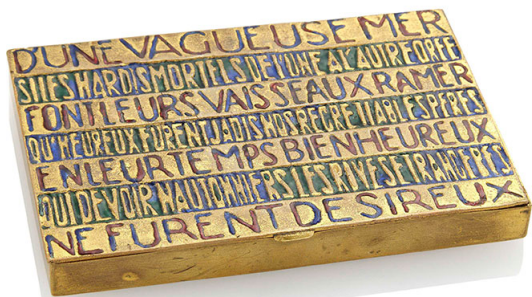 D'UNE VAGUEUSE MER
SI LES HARDIS MORTELS DE L'UNE A L AUTRE OREE
FONT LEURS VAISSEAUX RAMER
QU'HEUREUX FURENT JADIS NOS REGRETTABLES PERES
EN LEUR TEMPS BIENHEUREUX
QUI DE VOIR NAUTONNIERS LES RIVES ETRANGERES
NE FURENT DESIREUX